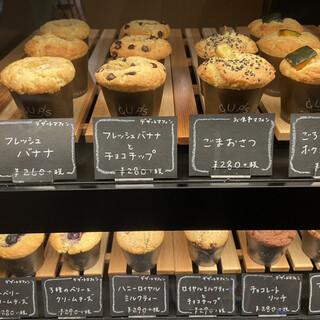 デザートマフィン
フレッシュ
バナナ
¥260+税
デザートマフィン
フレッシュバナナ
と
チョコチップ
¥280+税
お食事マフィン
ごまおさつ
¥280+税
ベリー
3種のベリーと
クリームチーズ
デザートマフィン
ハニーロイヤル
ミルクティー
¥290+税
デザートマフィン
ロイヤルミルクティー
と
チョコチップ
デザートマフィン
チョコレート
リッチ
¥290+税